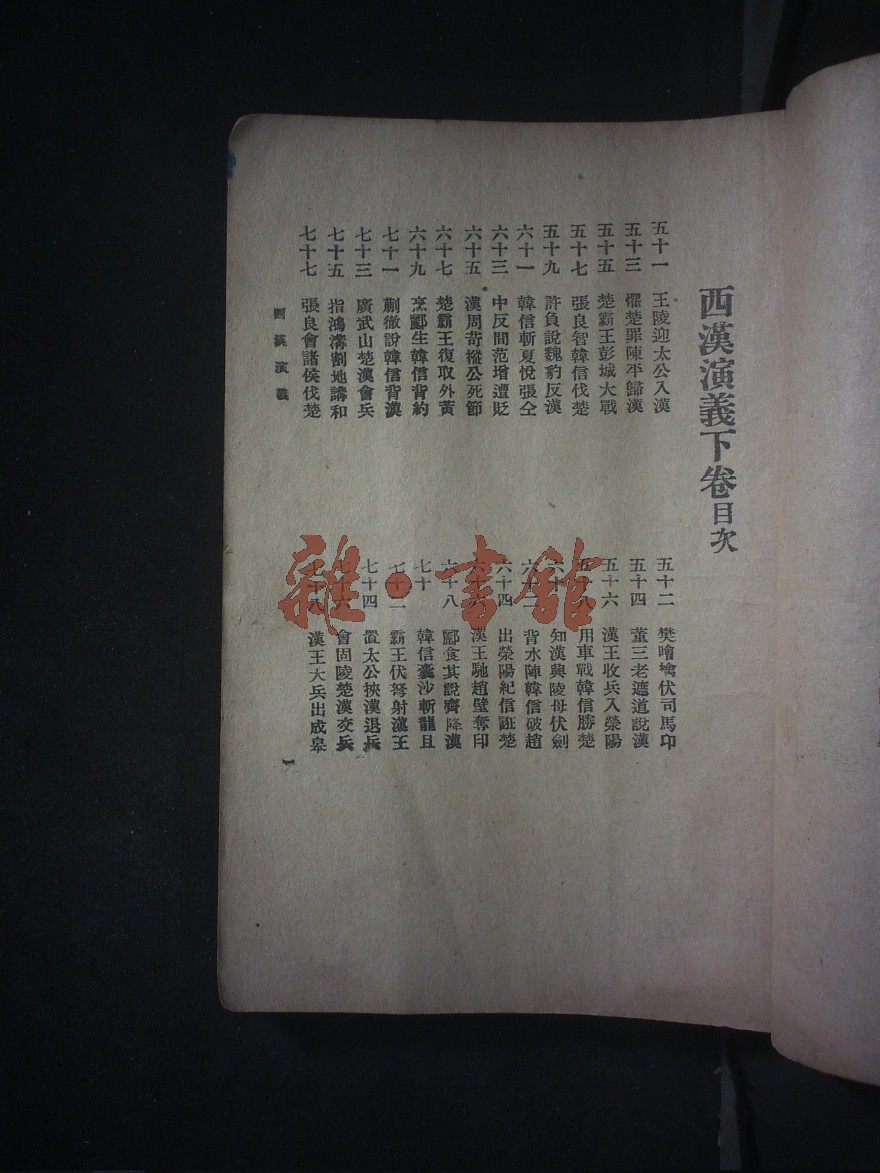 西漢演義下卷目次
五十一 王陵迎太公入漢
五十二 樊噲擒伏司馬卬
五十三 懼楚罪陳平歸漢
五十四 董三老遮道說漢
五十五 楚霸王彭城大戰
五十六 漢王收兵入滎陽
五十七 張良智韓信伐楚
五十八 用車戰韓信勝楚
五十九 許負說魏豹反漢
六十 知漢興陵母伏劍
六十一 韓信斬夏悅張仝
六十二 背水陣韓信破趙
六十三 中反間范增遭貶
六十四 出滎陽紀信誑楚
六十五 漢周苛摐公死節
六十六 漢王馳趙壁奪印
六十七 楚霸王復取外黃
六十八 酈食其說齊降漢
六十九 烹酈生韓信背約
七十 韓信囊沙斬龍且
七十一 蒯徹說韓信背漢
七十二 霸王伏弩射漢王
七十三 廣武山楚漢會兵
七十四 置太公挾漢退兵
七十五 指鴻溝割地講和
七十六 會固陵楚漢交兵
七十七 張良會諸侯伐楚
七十八 漢王大兵出成皋
西漢演義
一
雜·書館